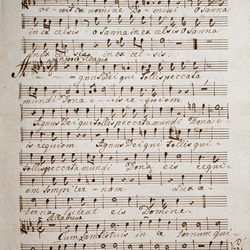 in nomine Domini Osanna
in excelsis Osanna in excelsis Osanna
in excelsis
Agnus Dei qui tollis peccata
mundi Dona eis requiem
Agnus Dei qui tollis peccata mundi Dona e
is requiem Agnus Dei qui tollis
peccata mundi Dona eis requi
em sempiternam Lux æ
terna luceat eis Domine
Cum sanctis tuis in æternum qui